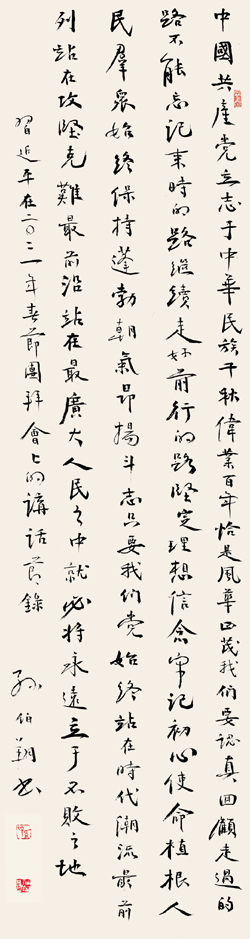 中國共產党立志于中華民族千秋偉業百年恰是風華正茂我们要認真回顧走過的
路不能忘記来時的路繼續走好前行的路堅定理想信念牢記初心使命植根人
民羣衆始終保持蓬勃朝氣昂揚斗志只要我们党始終站在時代潮流最前
列站在攻堅克難最前沿站在最廣大人民之中就必將永遠立于不敗之地
習近平在二〇二一年春節團拜會上的講話節錄
孙伯翔书